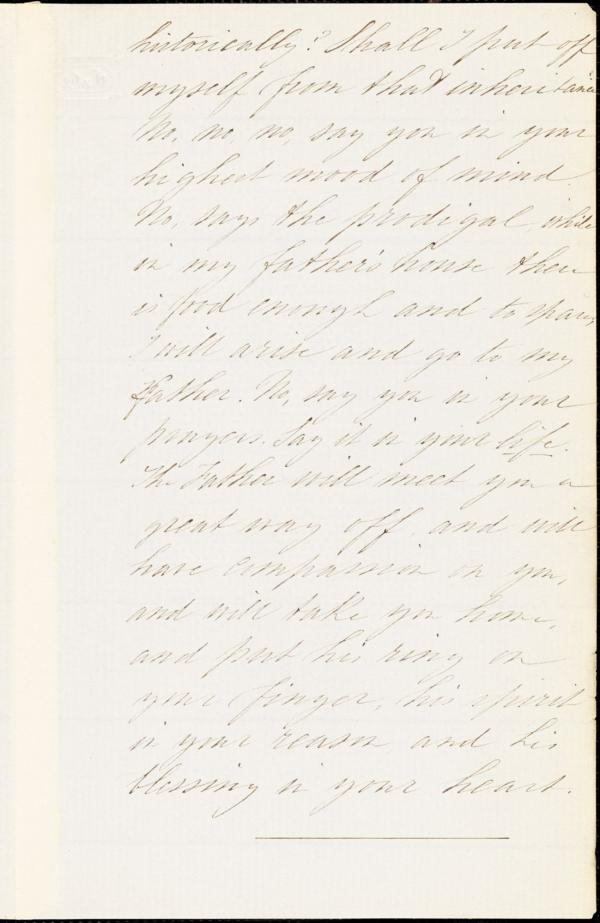 historically? Shall I put off
myself from that inheritance
No, no, no, say you in your
highest mood of mind.
No, says the prodigal, while
in my father's house there
is food enough and to spare,
I will arise and go to my
Father. No, say you in your
prayers. Say it in your life.
The Father will meet you a
great way off, and will
have compassion on you,
and will take you home,
and put his ring on
your finger, his spirit
in your reason and his
blessing in your heart.